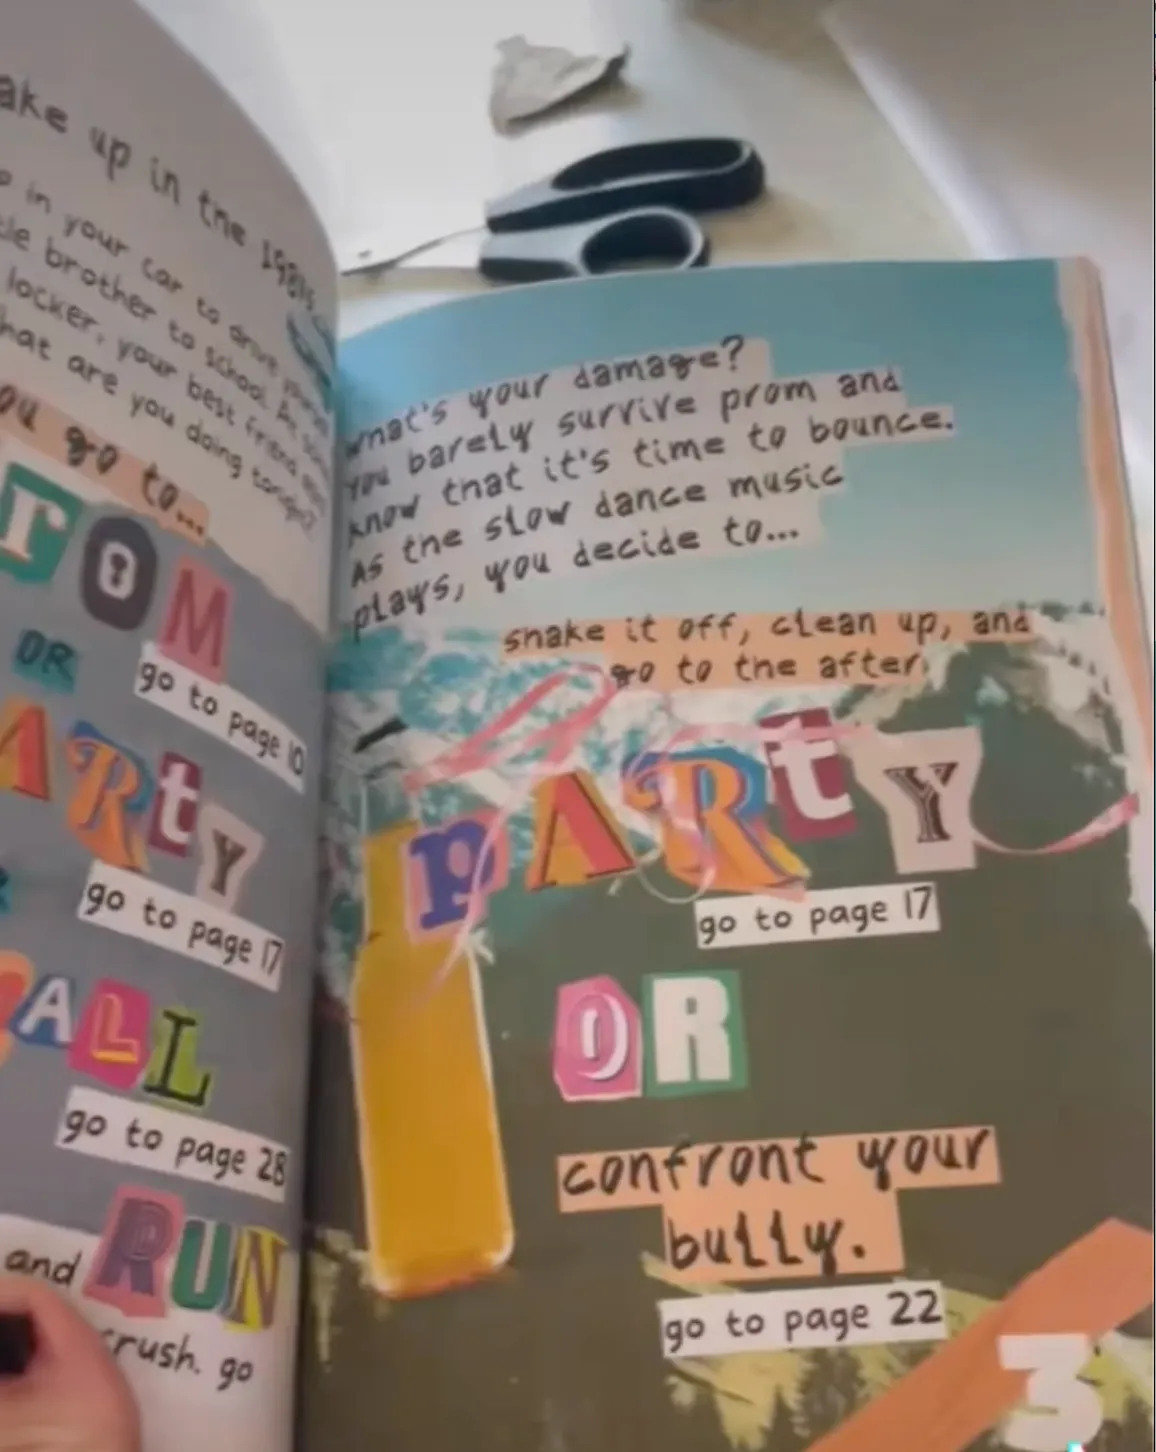 ake up in the 1981s
in your car to drive
tle brother to school. At
locker, your best friend
hat are you doing tonight?
ou go to...
rOM
OR
go to page 10
ARtY
go to page 17
ALL
go to page 28
and RUN
crush. go
What's your damage?
You barely survive prom and
know that it's time to bounce.
As the slow dance music
plays, you decide to...
shake it off, clean up, and
go to the after
pARtY
go to page 17
OR
confront your
bully.
go to page 22
3